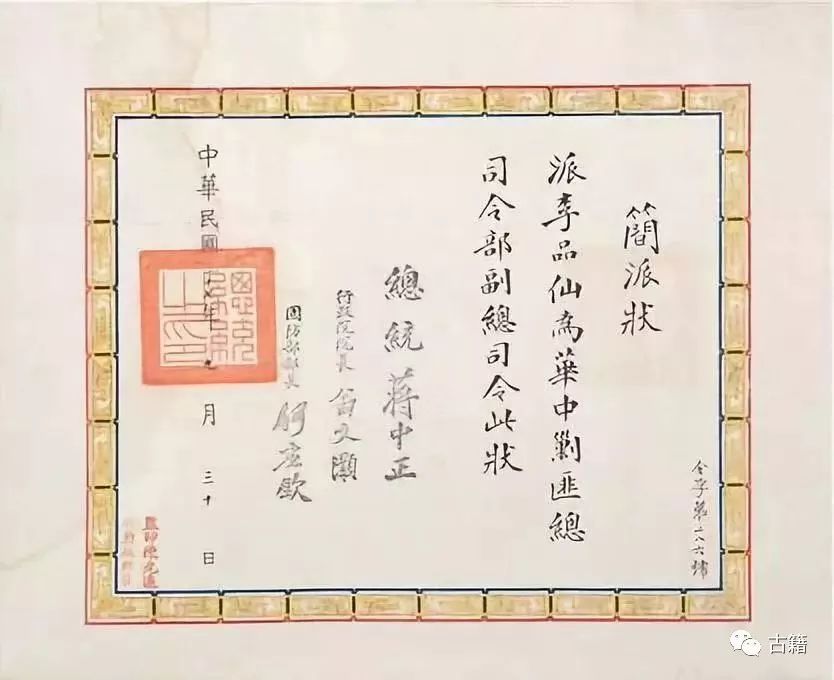 簡派狀
派李品仙為華中剿匪總
司令部副總司令此狀
總統 蔣中正
行政院院長 翁文灝
國防部部長 何應欽
中華民國
年九月三十日
總統之印
令字第二八六號
監印陳光遠
古籍